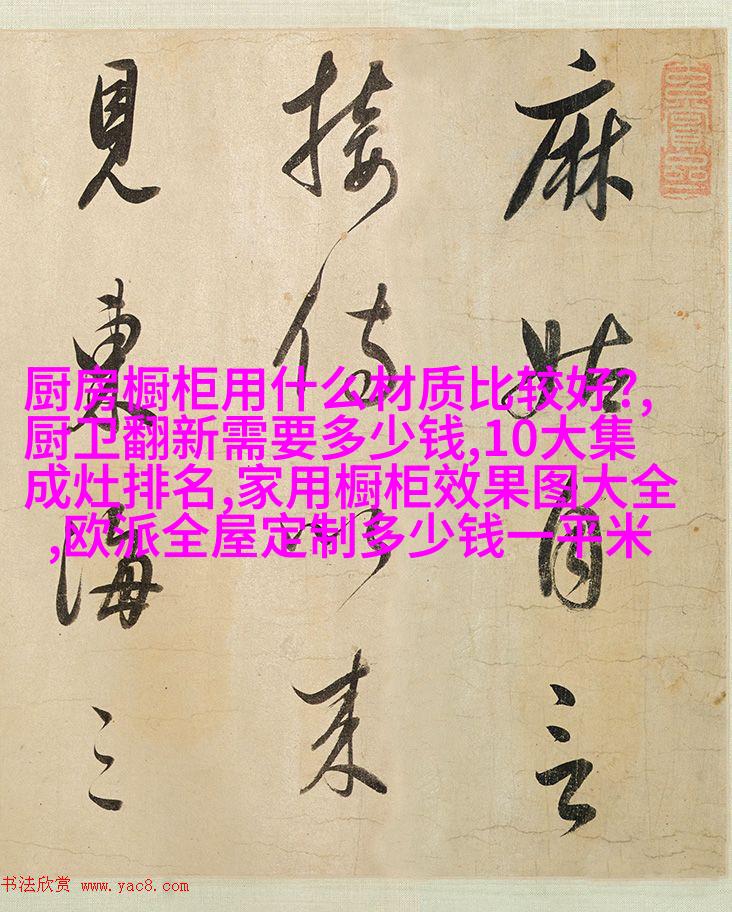 麻姑自言
接待以来
見東海三
厨房橱柜用什么材质比较好?,
厨卫翻新需要多少钱,10大集
成灶排名,家用橱柜效果图大全
,欧派全屋定制多少钱一平米
书法欣赏 www.yac8.com